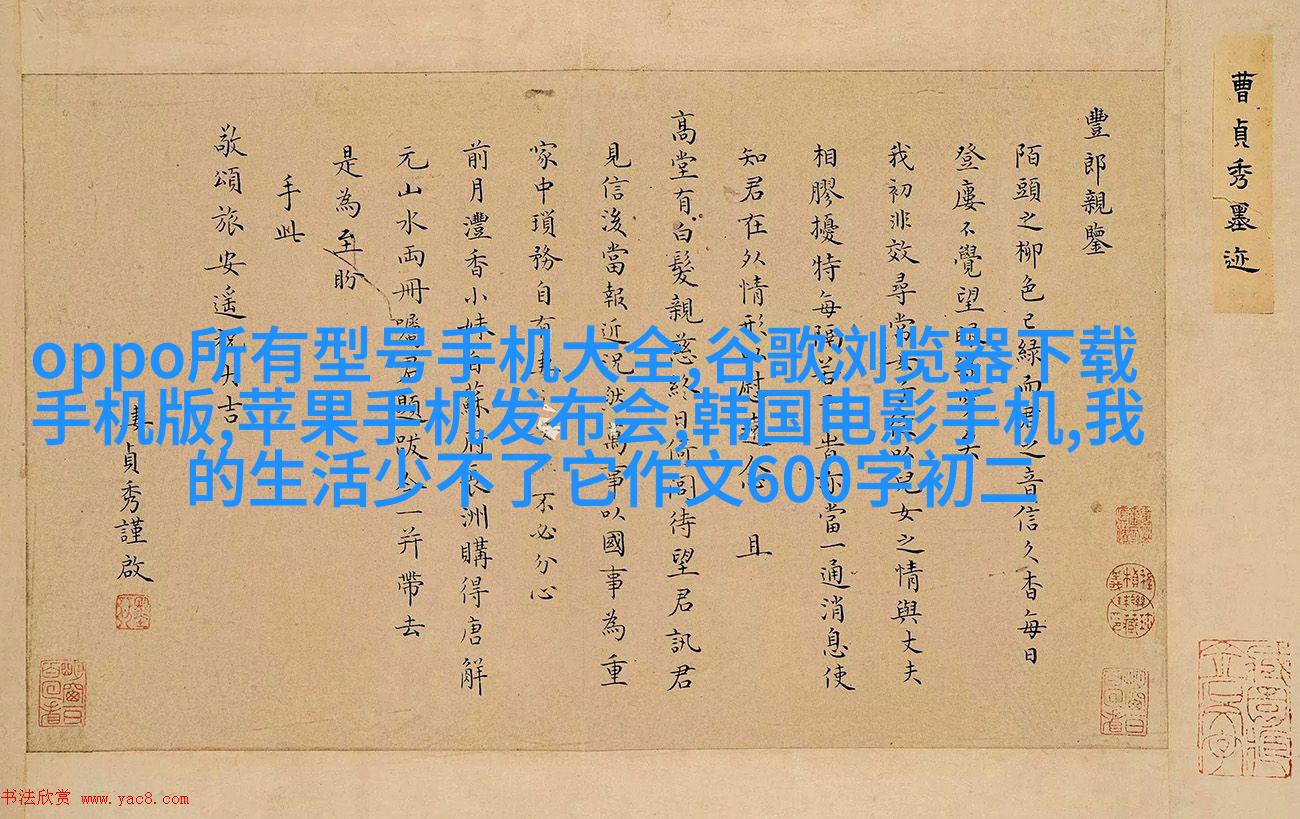 曹貞秀墨迹
豐郎親鑒
陌頭之柳色已綠而君之音信久杳每日
登廔不覺望眼
我初非效尋常以兒女之情與丈夫
相膠擾特每隔若當一通消息使
知君在外情形以慰遠人心 且
高堂有白髮親慈終日倚閭待望君訊君
見信後當報近況然萬事以國事為重
家中瑣務自有妻不必分心
前月灃香小妹自蘇府長洲購得唐解
元山水兩冊囑君題跋今一并帶去
是為至盼
手此
敬頌旅安遙祝大吉
妻貞秀謹啟
oppo所有型号手机大全,谷歌浏览器下载
手机版,苹果手机发布会,韩国电影手机,我
的生活少不了它作文600字初二
书法欣赏 www.yac8.com